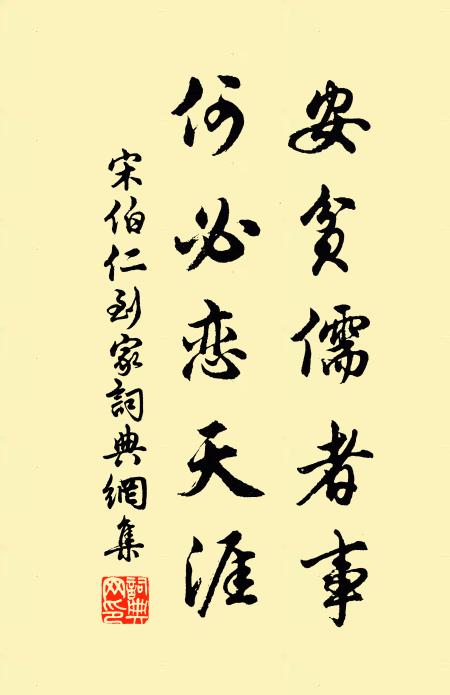 安貧儒者事
何必恋天涯
宋伯仁到家詞典網集
詞典網印